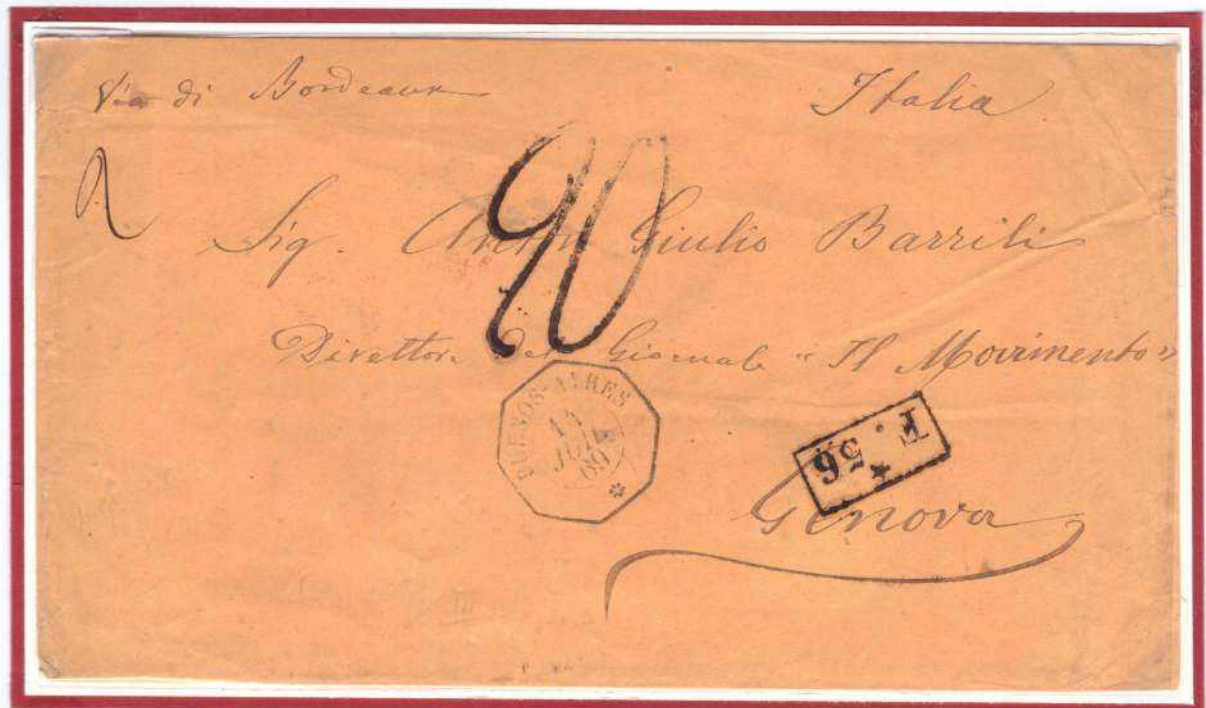 Via di Bordeaux Italia
2
90
Sig. Anton Giulio Barrili
Direttore del Giornale « Il Movimento »
BUENOS-AIRES
14
JUIL
69
F. 56
Genova